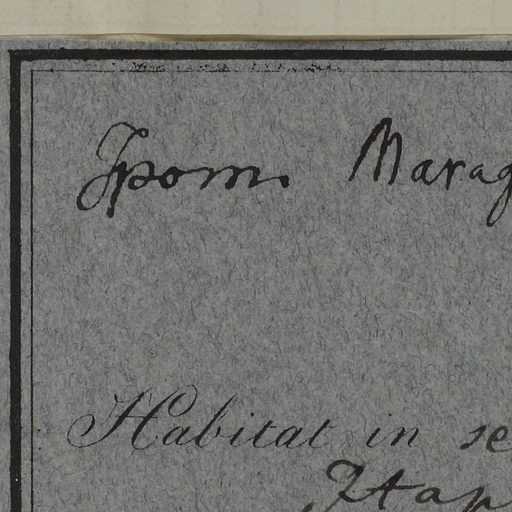 Ipom. Marag
Habitat in se
Itap